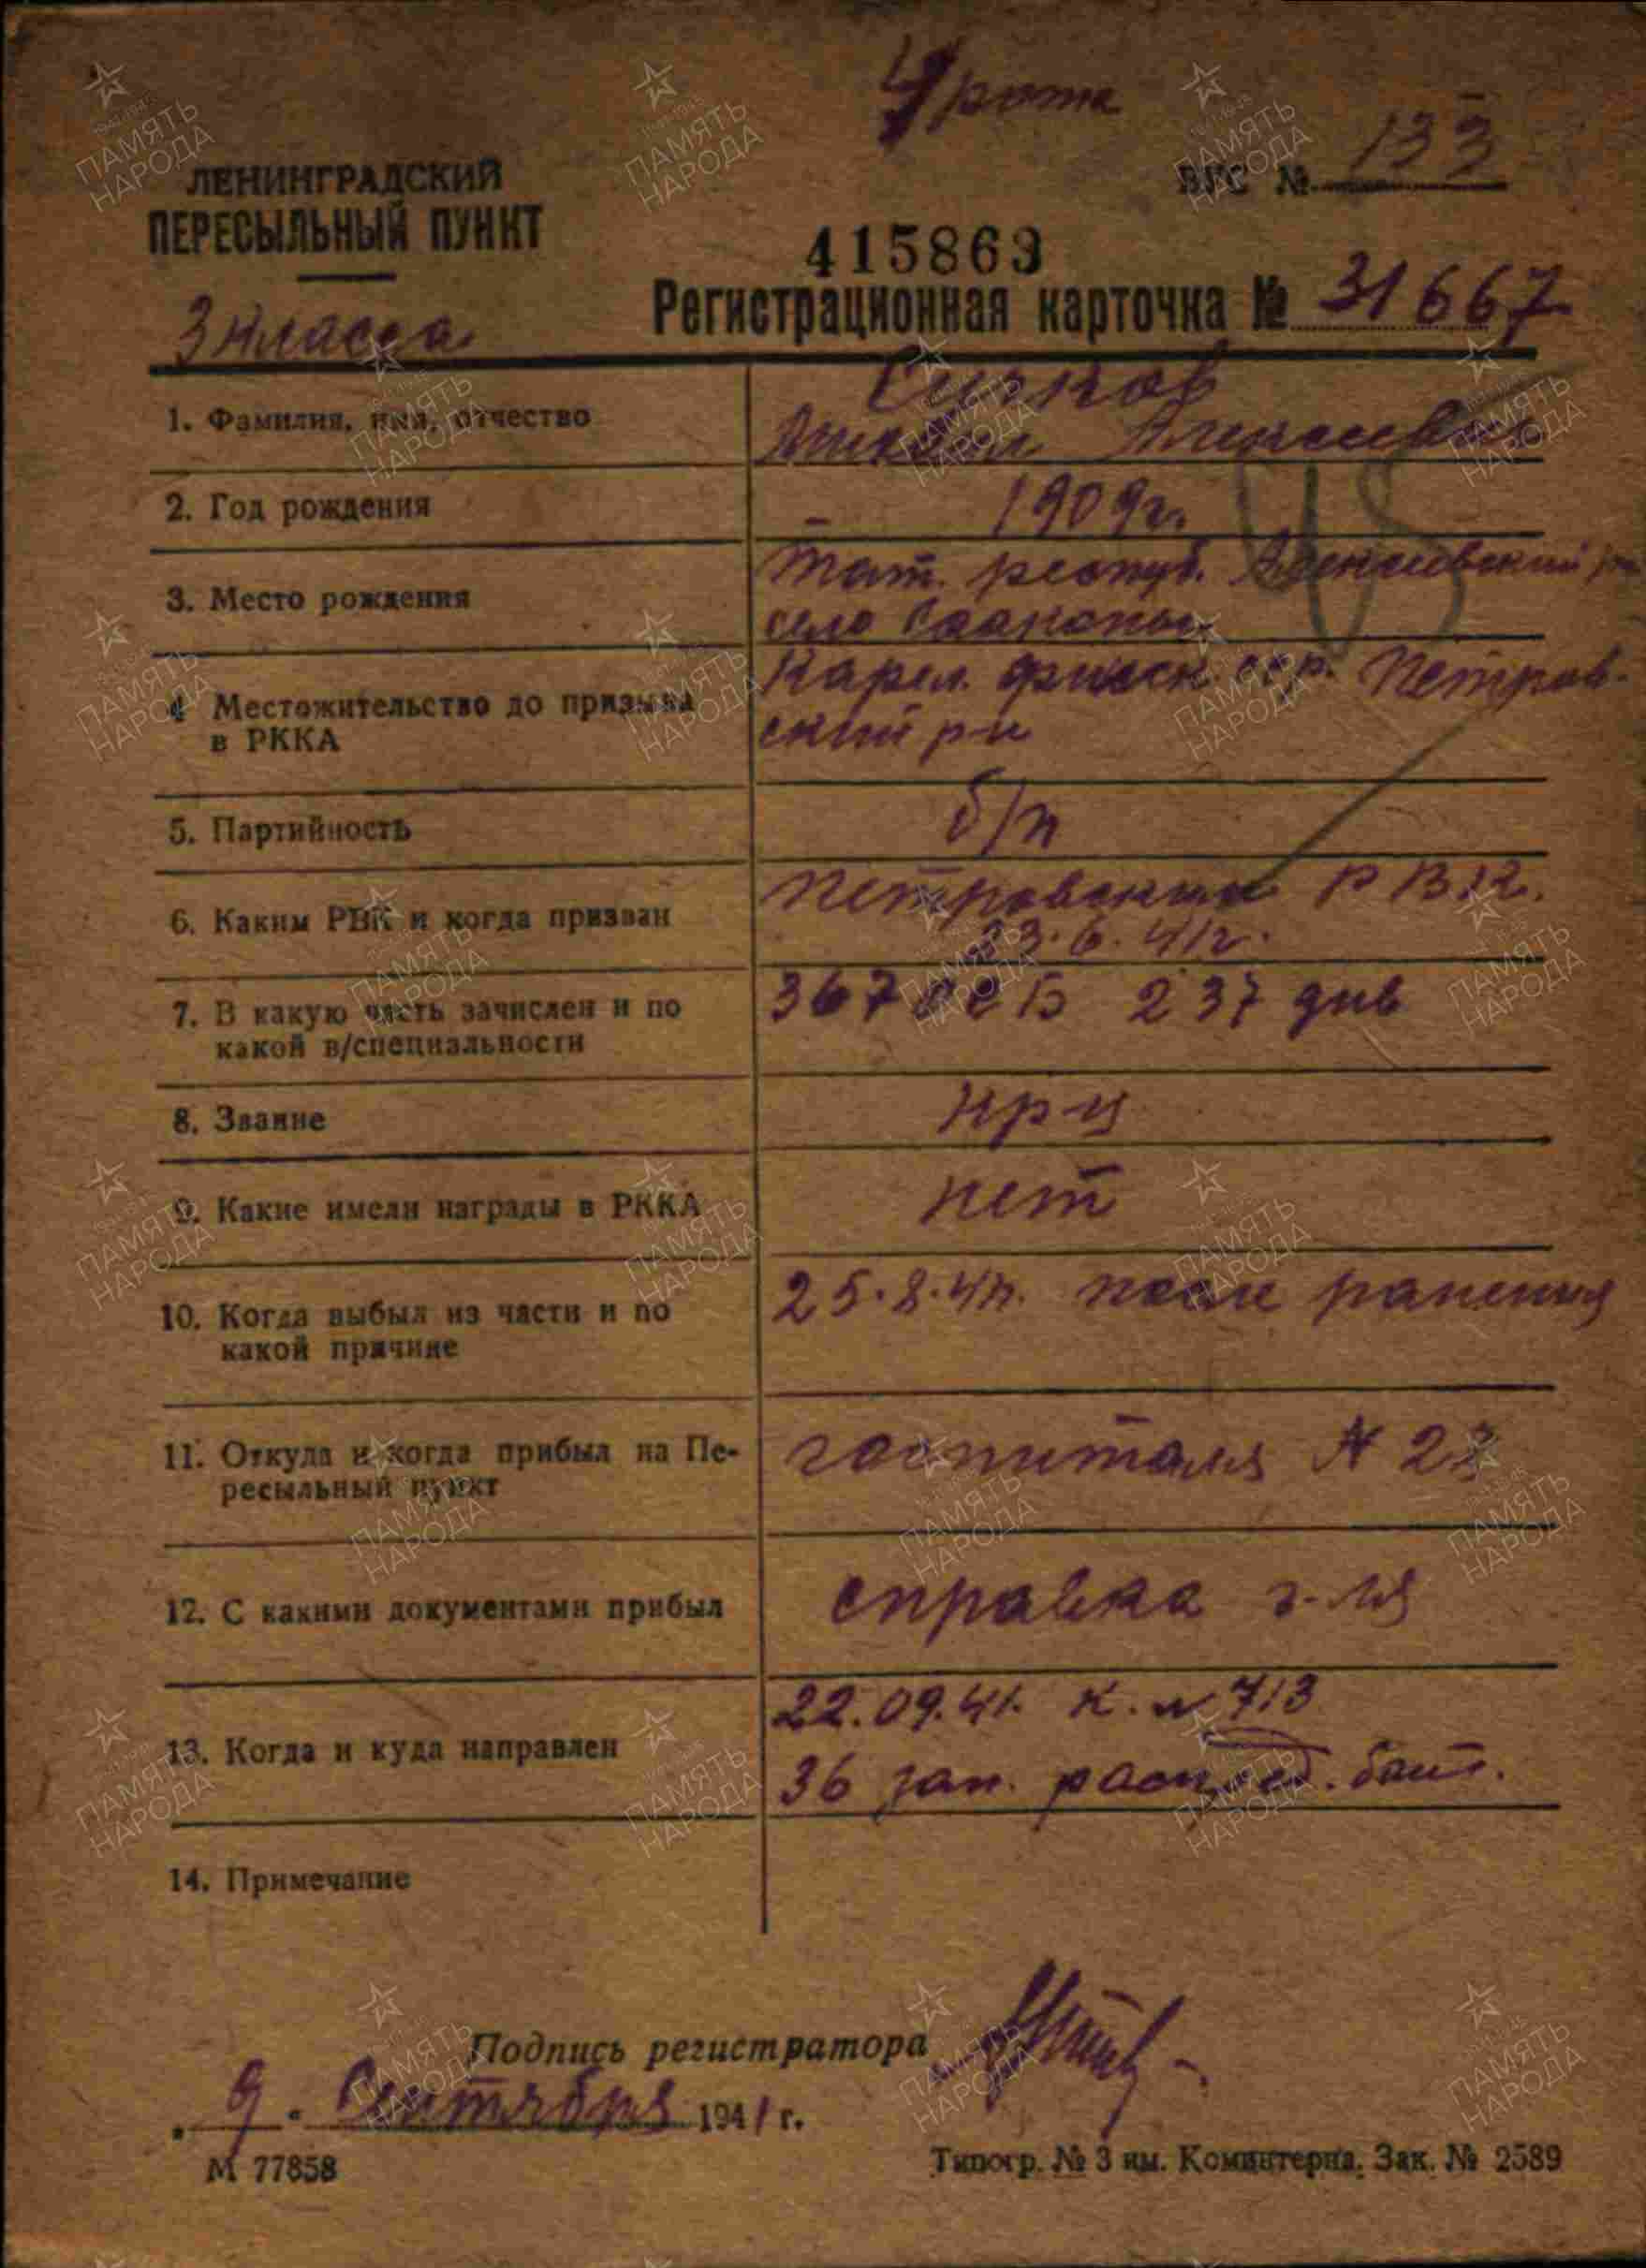 4 рота
ВУС № 133
ЛЕНИНГРАДСКИЙ
ПЕРЕСЫЛЬНЫЙ ПУНКТ
415863
3 класса
Регистрационная карточка № 31667
1. Фамилия, имя, отчество
Сычков
Алексеевич
2. Год рождения
1909 г.
3. Место рождения
Тат. респуб. Алексеевский
село
4 Местожительство до призыва
в РККА
Карел. финск. сср. Петров-
ский р-н
5. Партийность
б/п
6. Каким РВК и когда призван
Петровским РВК.
23.6.41г.
7. В какую часть зачислен и по
какой в/специальности
367 237 див
8. Звание
кр-ц
9. Какие имели награды в РККА
нет
10. Когда выбыл из части и по
какой причине
25.8.41. после ранения
11. Откуда и когда прибыл на Пе-
ресыльный пункт
госпиталя №
12. С какими документами прибыл
справка г-ля
13. Когда и куда направлен
22.09.41. К. № 713
36 зап. распред. бат.
14. Примечание
Подпись регистратора
9 Сентября 1941 г.
М 77858
Типогр. № 3 им. Коминтерна. Зак. № 2589
ПАМЯТЬ
НАРОДА